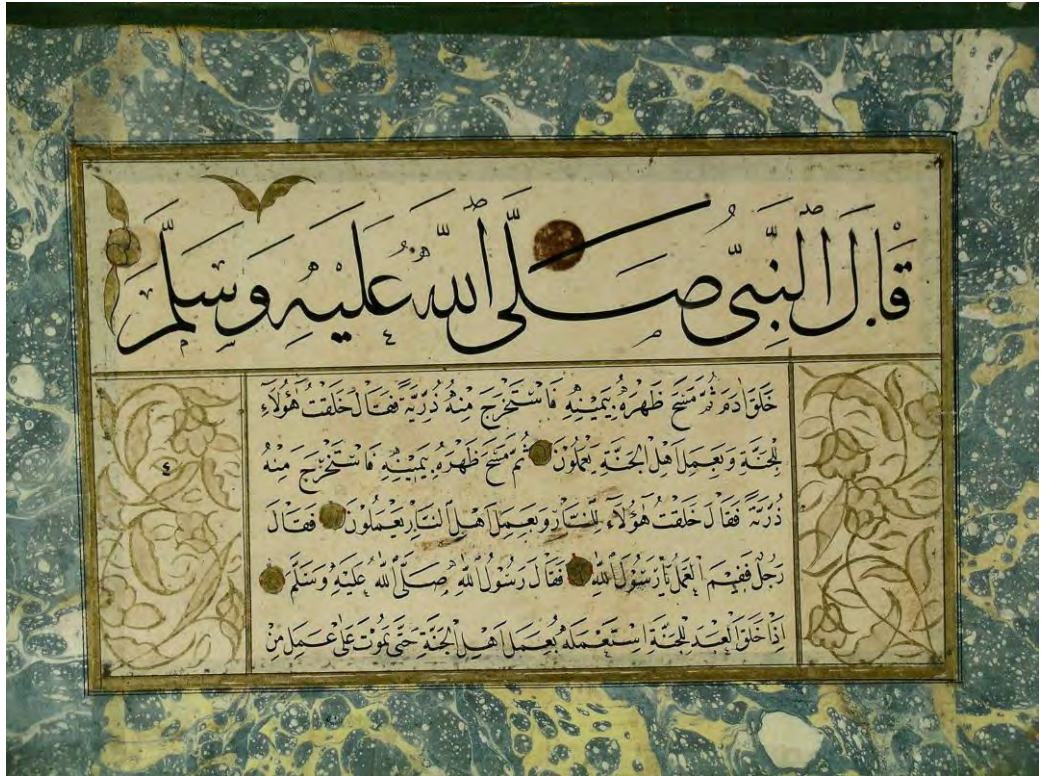 قَالَ النَّبِيُّ صَلَّى اللّٰهُ عَلَيْهِ وَسَلَّمَ
خَلَقَ اٰدَمَ ثُمَّ مَسَحَ ظَهْرَهُ بِيَمِينِهِ فَاسْتَخْرَجَ مِنْهُ ذُرِّيَّةً فَقَالَ خَلَقْتُ هٰؤُلَاءِ
لِلْجَنَّةِ وَبِعَمَلِ اَهْلِ الْجَنَّةِ يَعْمَلُوْنَ ثُمَّ مَسَحَ ظَهْرَهُ بِيَمِينِهِ فَاسْتَخْرَجَ مِنْهُ
ذُرِّيَّةً فَقَالَ خَلَقْتُ هٰؤُلَاءِ لِلنَّارِ وَبِعَمَلِ اَهْلِ النَّارِ يَعْمَلُوْنَ فَقَالَ
رَجُلٌ فَفِيْمَ الْعَمَلُ يَا رَسُوْلَ اللّٰهِ فَقَالَ رَسُوْلُ اللّٰهِ صَلَّى اللّٰهُ عَلَيْهِ وَسَلَّمَ
اِذَا خَلَقَ الْعَبْدَ لِلْجَنَّةِ اسْتَعْمَلَهُ بِعَمَلِ اَهْلِ الْجَنَّةِ حَتّٰى يَمُوْتَ عَلٰى عَمَلٍ مِنْ